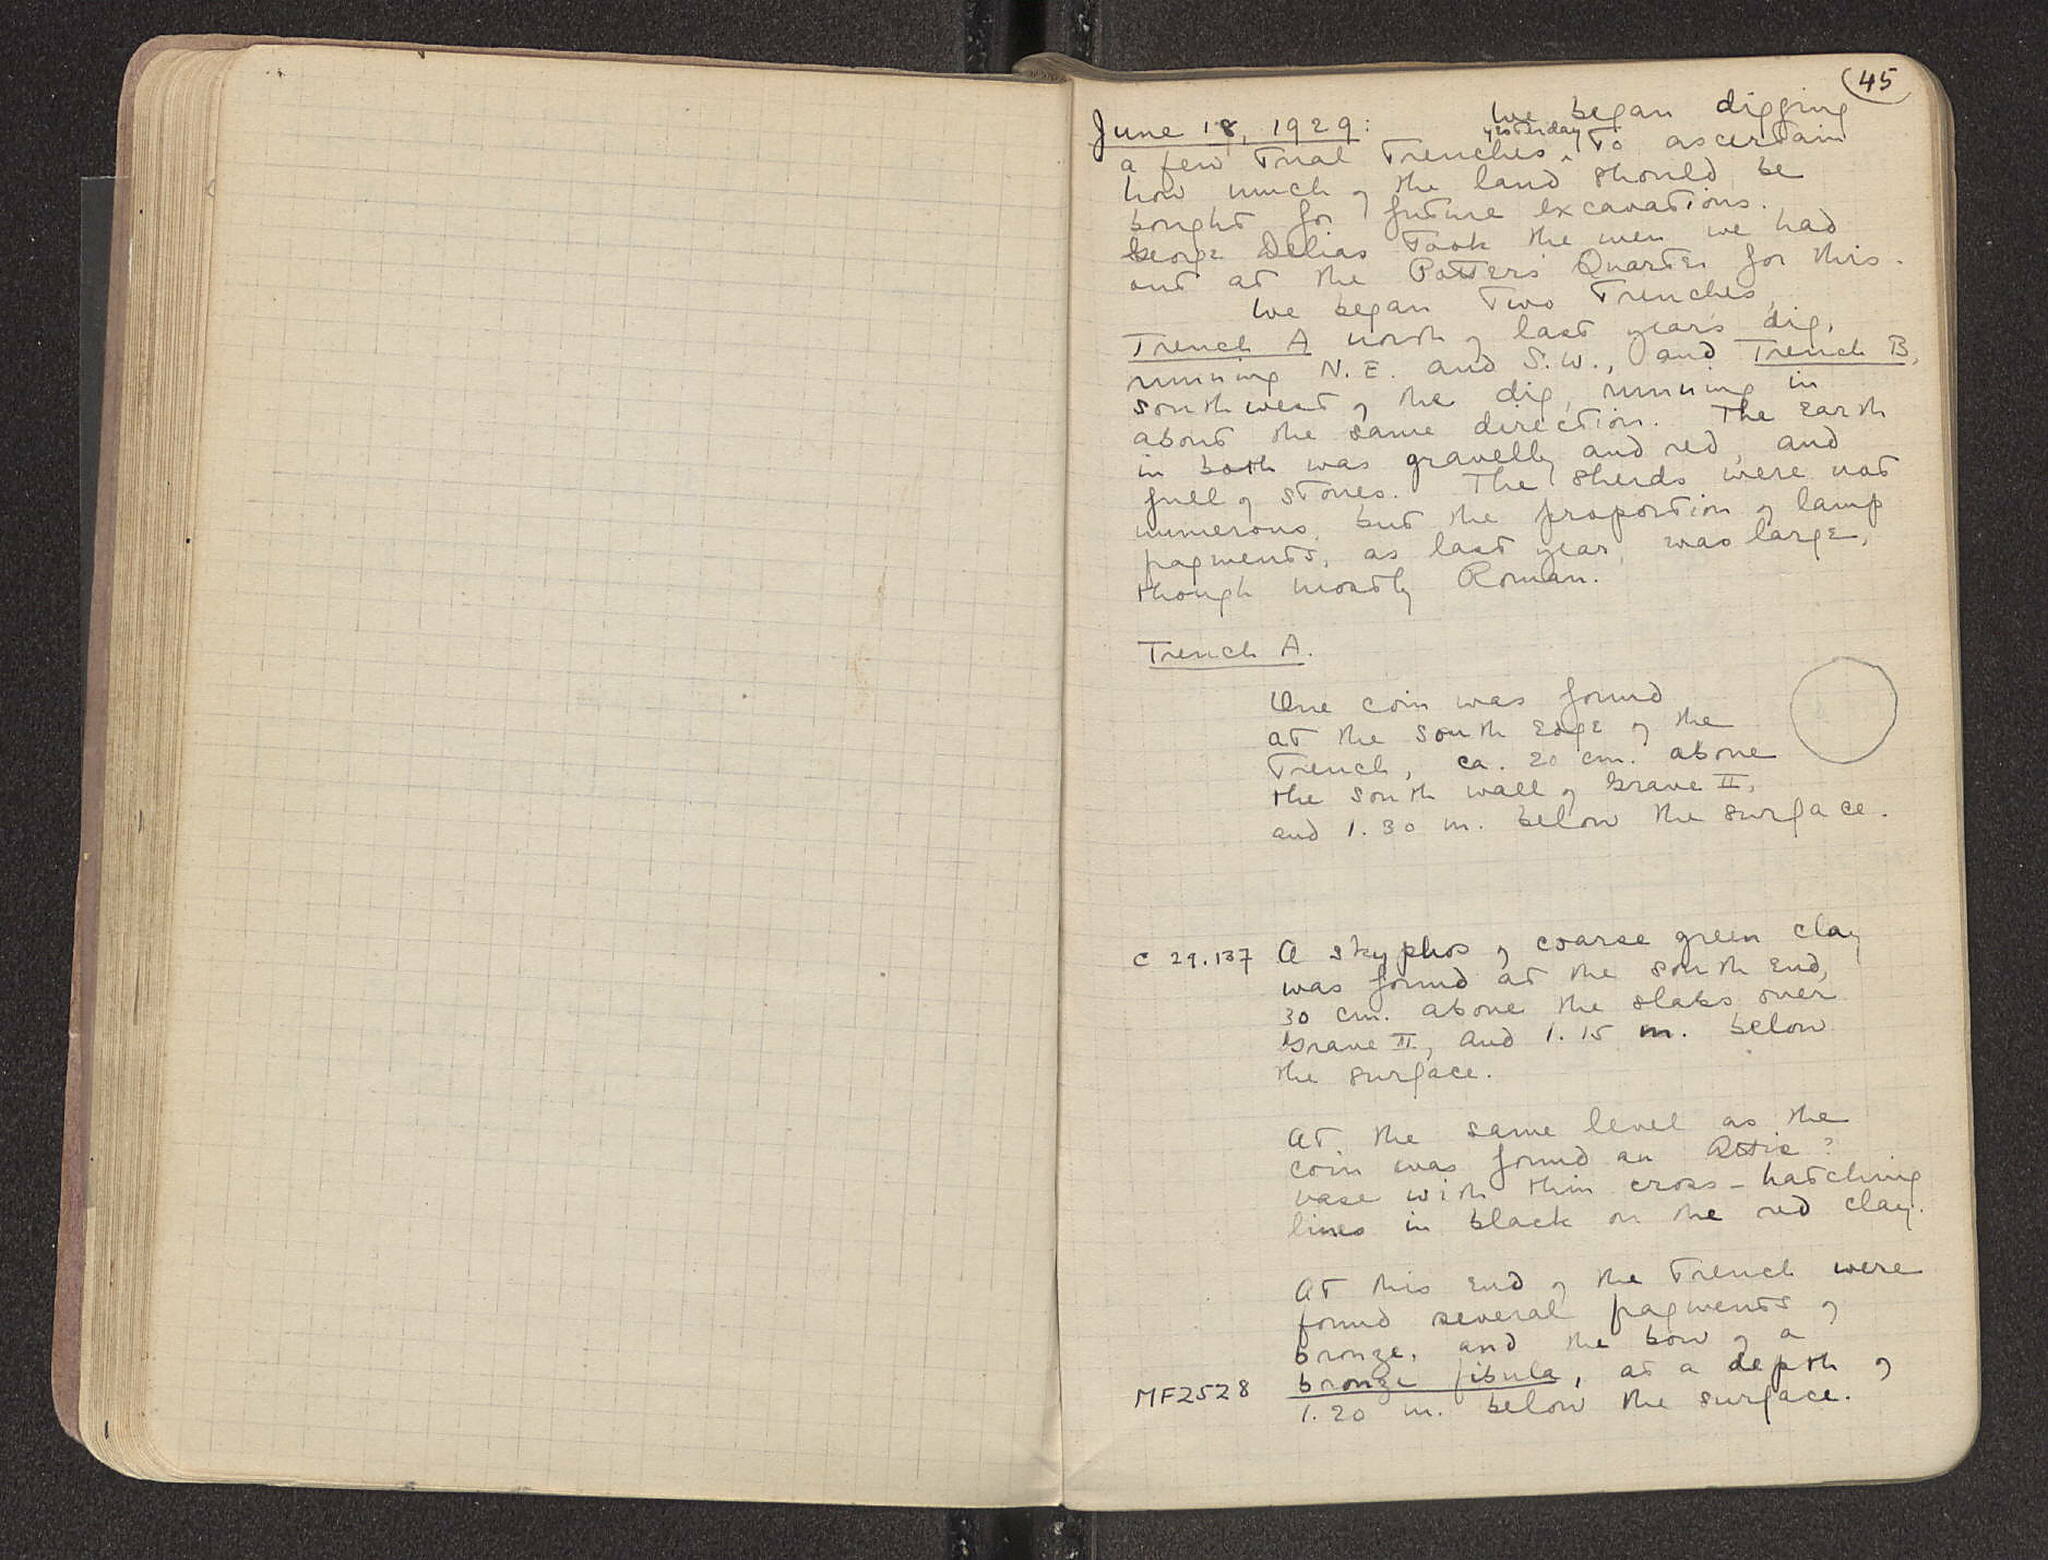 45
June 18, 1929: We began digging
a few trial trenches yesterday to ascertain
how much of the land should be
bought for future excavations.
George Delias took the men we had
out at the Potters' Quarter for this.
We began two trenches,
Trench A north of last year's dig,
running N.E. and S.W., and Trench B,
southwest of the dig, running in
about the same direction. The earth
in both was gravelly and red, and
full of stones. The sherds were not
numerous, but the proportion of lamp
fragments, as last year, was large,
though mostly Roman.
Trench A.
One coin was found
at the south edge of the
trench, ca. 20 cm. above
the south wall of Grave II,
and 1.30 m. below the surface.
C 29.137 A skyphos of coarse green clay
was found at the south end,
30 cm. above the slabs over
Grave II, and 1.15 m. below
the surface.
At the same level as the
coin was found an Attic?
vase with thin cross-hatching
lines in black on the red clay.
At this end of the trench were
found several fragments of
bronze, and the bow of a
MF2528 bronze fibula, at a depth of
1.20 m. below the surface.